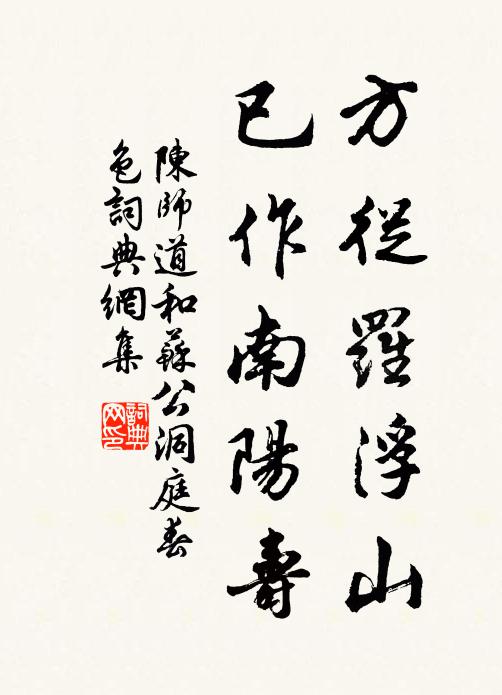 方從羅浮山
已作南陽壽
陳師道和蘇公洞庭春
色詞典網集
詞典
网印